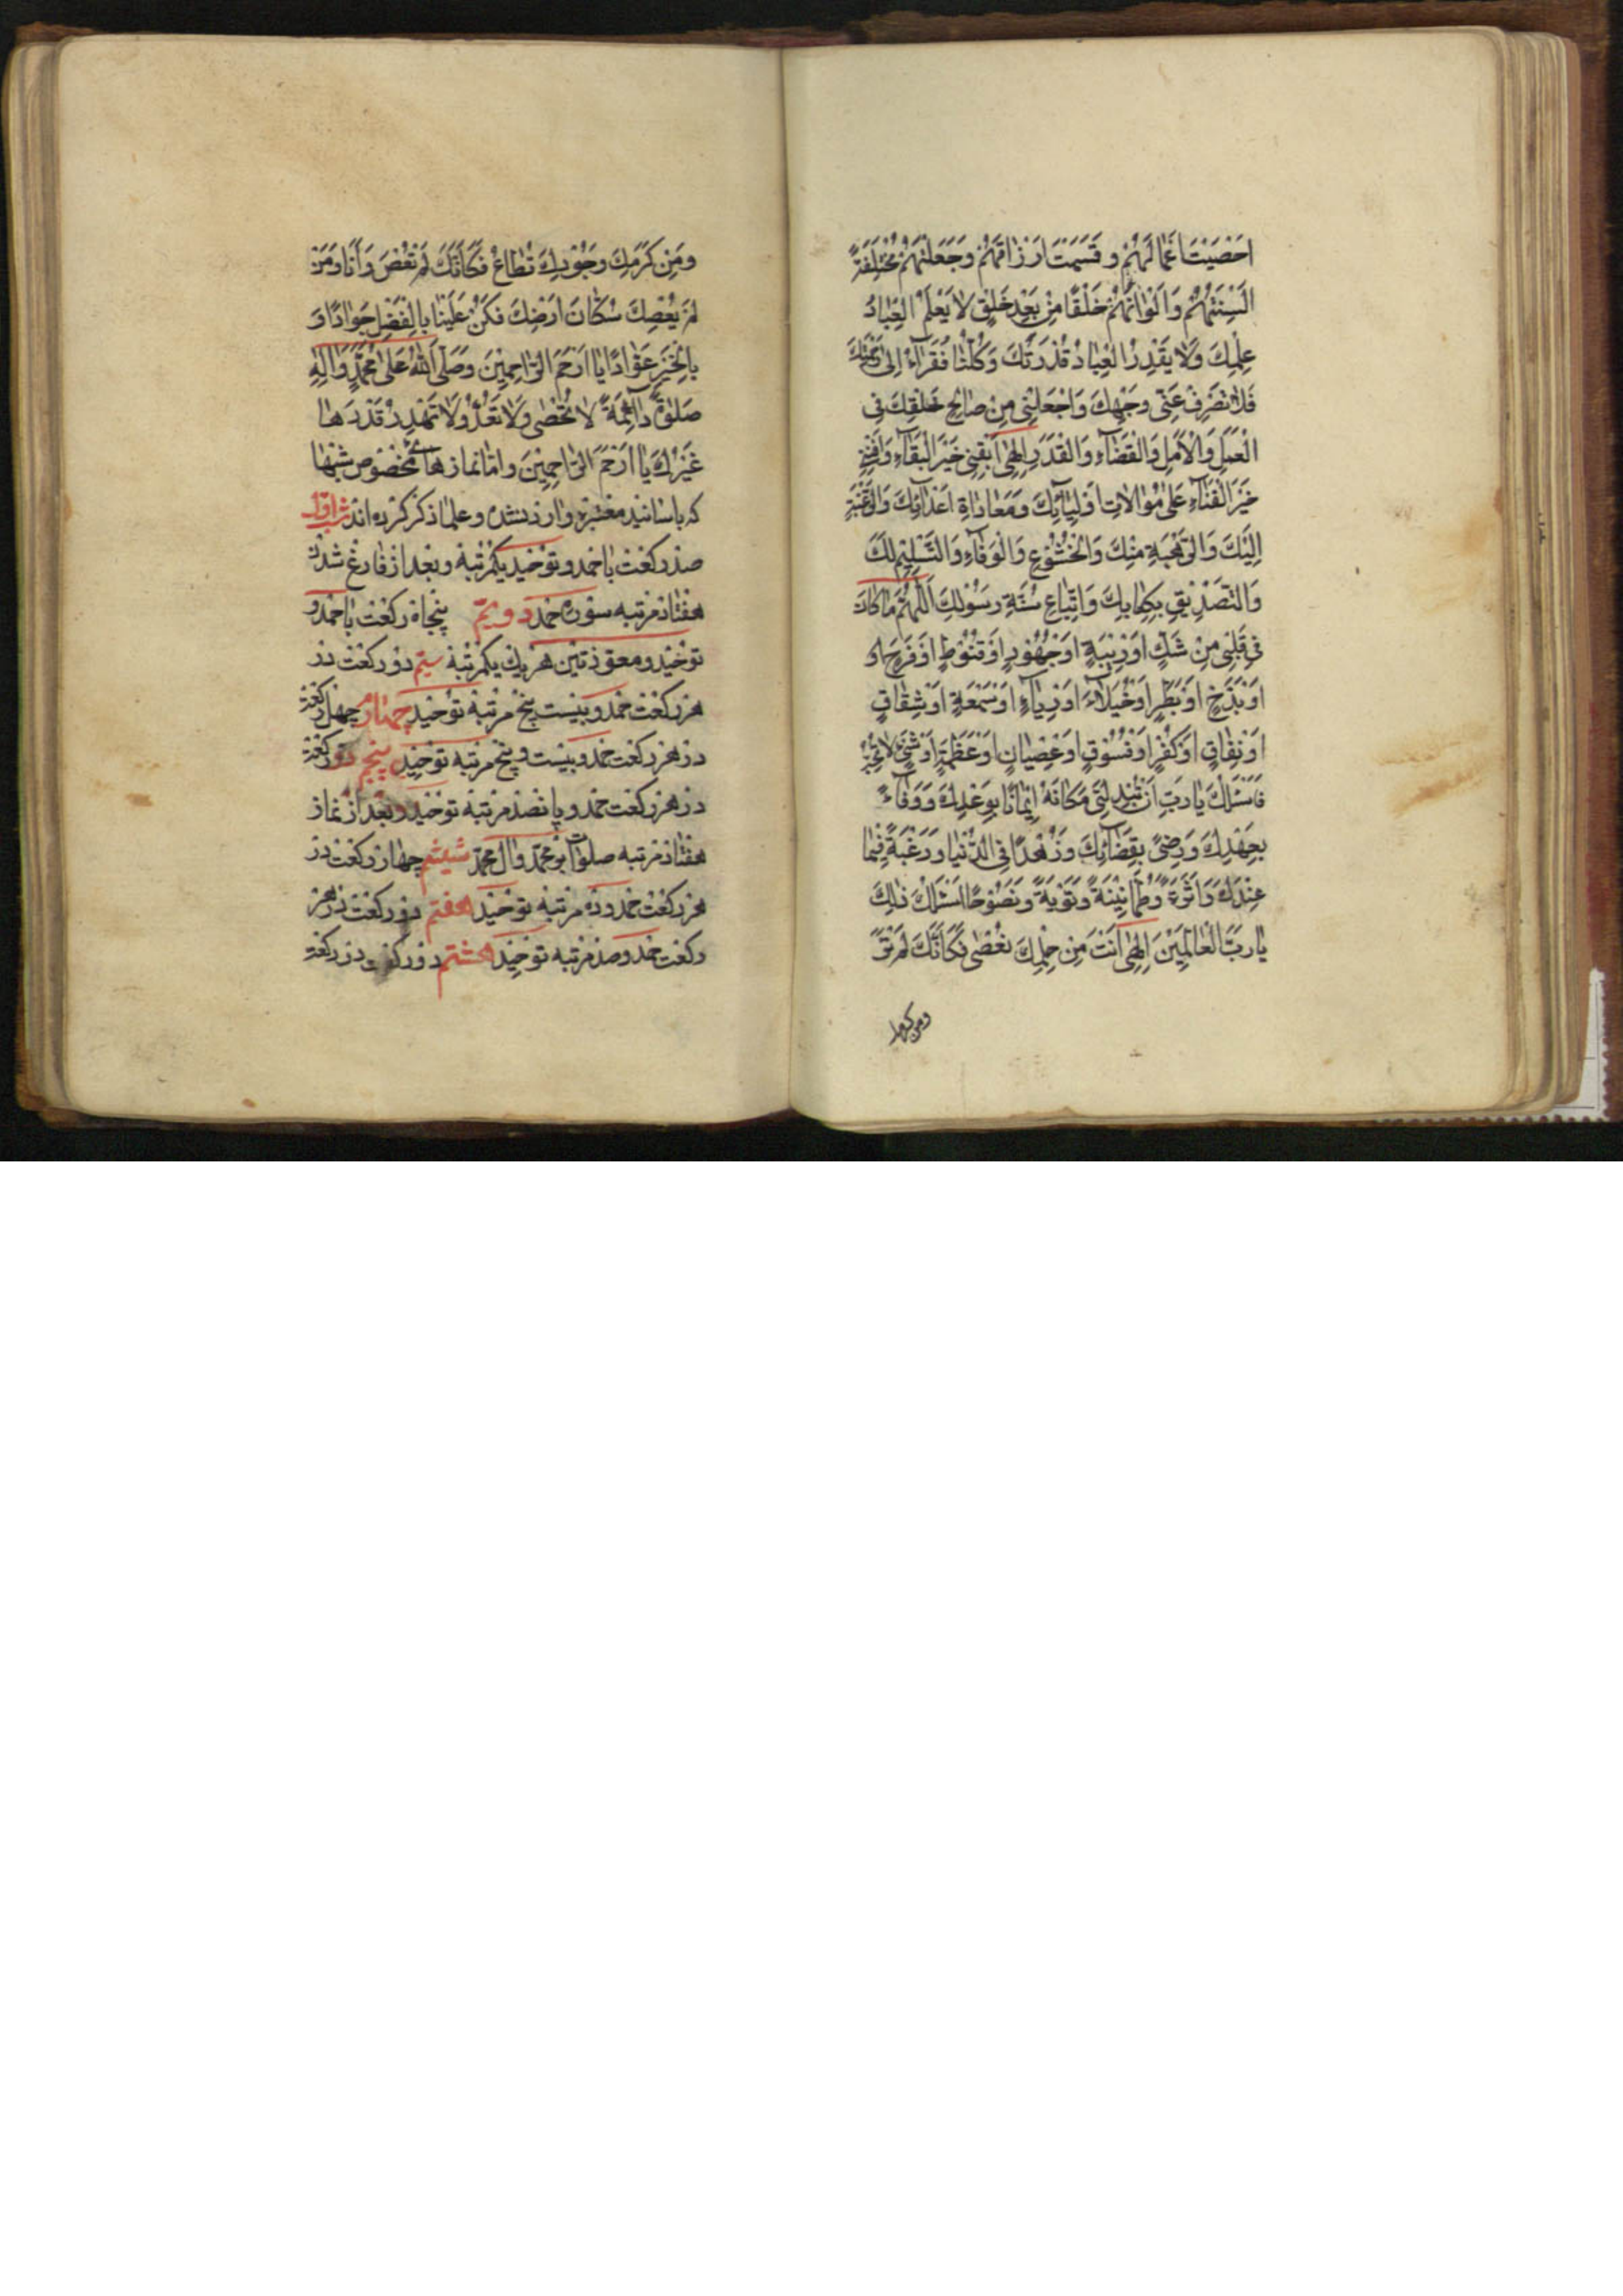 اَحْصَيْتَ اَعْمالَهُمْ وَ قَسَمْتَ اَرْزاقَهُمْ وَجَعَلْتَهُمْ مُخْتَلِفَةً
اَلْسِنَتُهُمْ وَ اَلْوانُهُمْ خَلْقًا مِنْ بَعْدِ خَلْقٍ لا يَعْلَمُ الْعِبادُ
عِلْمَكَ وَلا يَقْدِرُ الْعِبادُ قَدْرَكَ وَكُلُّنا فُقَرآءُ اِلى رَحْمَتِكَ
فَلا تَصْرِفْ عَنّى وَجْهَكَ وَاجْعَلْنِى مِنْ صالِحِ خَلْقِكَ فِى
الْعَمَلِ وَالْاَمَلِ وَالْقَضآءِ وَالْقَدَرِ اِلهِى اَبْقِنِى خَيْرَ الْبَقآءِ وَاَفْنِنِى
خَيْرَ الْفَنآءِ عَلى مُوالاتِ اَوْلِيآئِكَ وَمُعاداةِ اَعْدآئِكَ وَالرَّغْبَةِ
اِلَيْكَ وَالرَّهْبَةِ مِنْكَ وَالْخُشُوعِ وَالْوَفآءِ وَالتَّسْلِيمِ لَكَ
وَالتَّصْدِيقِ بِكِتابِكَ وَاتِّباعِ سُنَّةِ رَسُولِكَ اَللّهُمَّ ماكانَ
فِى قَلْبِى مِنْ شَكٍّ اَوْ رِيبَةٍ اَوْ جُهُودٍ اَوْ قُنُوطٍ اَوْ فَرَحٍ
اَوْ بَذَخٍ اَوْ بَطَرٍ اَوْ خُيَلآءَ اَوْ رِيآءٍ اَوْ سُمْعَةٍ اَوْ شِقاقٍ
اَوْ نِفاقٍ اَوْ كُفْرٍ اَوْ فُسُوقٍ اَوْ عِصْيانٍ اَوْ عَظَمَةٍ اَوْ شَىْءٍ لا تُحِبُّ
فَاَسْئَلُكَ يا رَبِّ اَنْ تُبْدِلَنِى مَكانَهُ اِيمانًا بِوَعْدِكَ وَوَفآءً
بِعَهْدِكَ وَرِضًى بِقَضآئِكَ وَزُهْدًا فِى الدُّنْيا وَرَغْبَةً فِيما
عِنْدَكَ وَ اَثَرَةً وَطُمَأْنِينَةً وَتَوْبَةً وَنَصُوحًا اَسْئَلُكَ ذلِكَ
يا رَبَّ الْعالَمِينَ اِلهِى اَنْتَ مِنْ حِلْمِكَ تُعْصى فَكَاَنَّكَ لَمْ تَرَ
ومن كرمك
وَمِنْ كَرَمِكَ وَجُودِكَ تُطاعُ فَكَاَنَّكَ لَمْ تُعْصَ وَاَنَا وَمَنْ
لَمْ يَعْصِكَ سُكّانُ اَرْضِكَ فَكُنْ عَلَيْنا بِالْفَضْلِ جَوادًا وَ
بِالْخَيْرِ عَوّادًا يا اَرْحَمَ الرّاحِمِينَ وَصَلَّى اللّهُ عَلى مُحَمَّدٍ وَآلِهِ
صَلوةً دآئِمَةً لا تُحْصى وَلا تُعَدُّ وَلا يَقْدِرُ قَدْرَها
غَيْرُكَ يا اَرْحَمَ الرّاحِمِينَ واما نمازهای مخصوص شبها
که باسانید معتبره وارد شده و علما ذکر کرده اند شب اول
صد رکعت با حمد و توحید یکمرتبه و بعد از فارغ شدن
هفتاد مرتبه سوره حمد دویم پنجاه رکعت با حمد و
توحید و معوذتین هر یک یکمرتبه سیم دو رکعت در
هر رکعت حمد و بیست پنج مرتبه توحید چهارم چهل رکعت
در هر رکعت حمد و بیست و پنج مرتبه توحید پنجم دو رکعت
در هر رکعت حمد و پانصد مرتبه توحید و بعد از نماز
هفتاد مرتبه صلوات بر محمد و آل محمد ششم چهار رکعت در
هر رکعت حمد و ده مرتبه توحید هفتم دو رکعت در هر
رکعت حمد و صد مرتبه توحید هشتم دو رکعت در رکعت